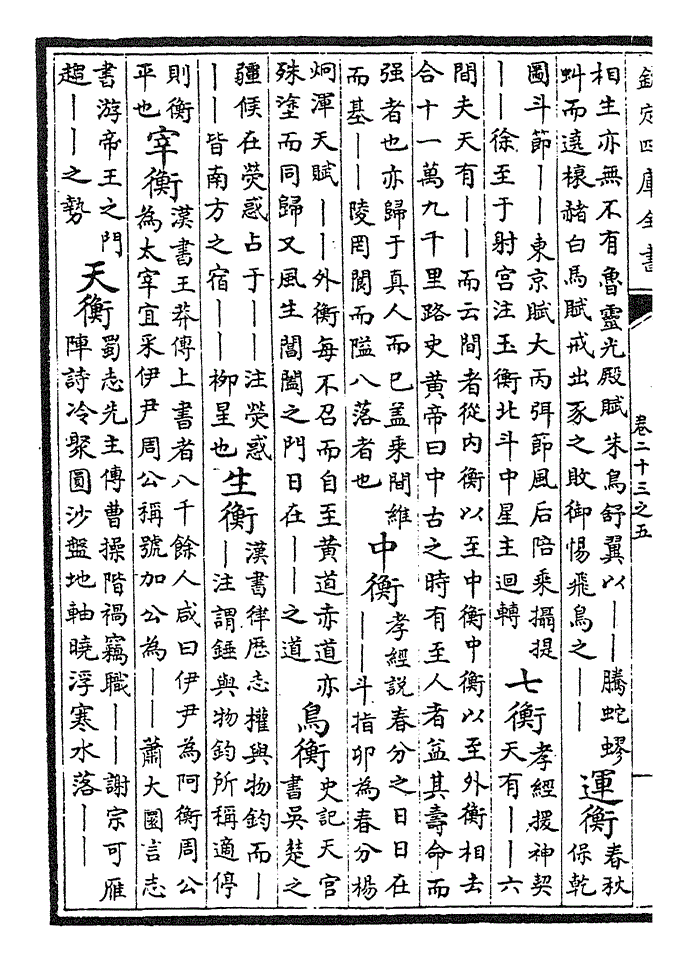 欽定四庫全書
卷二十三之五
相生亦無不有魯靈光殿賦朱鳥舒翼以丨丨騰蛇蟉
虯而遶榱赭白馬賦戒出豕之敗御惕飛鳥之丨丨
運衡
春秋
保乾
圖斗節丨丨東京賦大丙弭節風后陪乘攝提
丨丨徐至于射宮注玉衡北斗中星主迴轉
七衡
孝經援神契
天有丨丨六
間夫天有丨丨而云間者從内衡以至中衡中衡以至外衡相去
合十一萬九千里路史黄帝曰中古之時有至人者益其壽命而
强者也亦歸于真人而已盖乘間維
而基丨丨陵罔閬而隘八落者也
中衡
孝經説春分之日日在
丨丨斗指卯為春分楊
炯渾天賦丨丨外衡每不召而自至黄道赤道亦
殊塗而同歸又風生閶闔之門日在丨丨之道
鳥衡
史記天官
書吳楚之
疆候在熒惑占于丨丨注熒惑
丨丨皆南方之宿丨丨柳星也
生衡
漢書律歷志權與物鈞而丨
丨注謂錘與物鈞所稱適停
則衡
平也
宰衡
漢書王莽傳上書者八千餘人咸曰伊尹為阿衡周公
為太宰宜采伊尹周公稱號加公為丨丨蕭大圜言志
書游帝王之門
趨丨丨之勢
天衡
蜀志先主傳曹操階禍竊職丨丨謝宗可雁
陣詩冷聚圓沙盤地軸曉浮寒水落丨丨